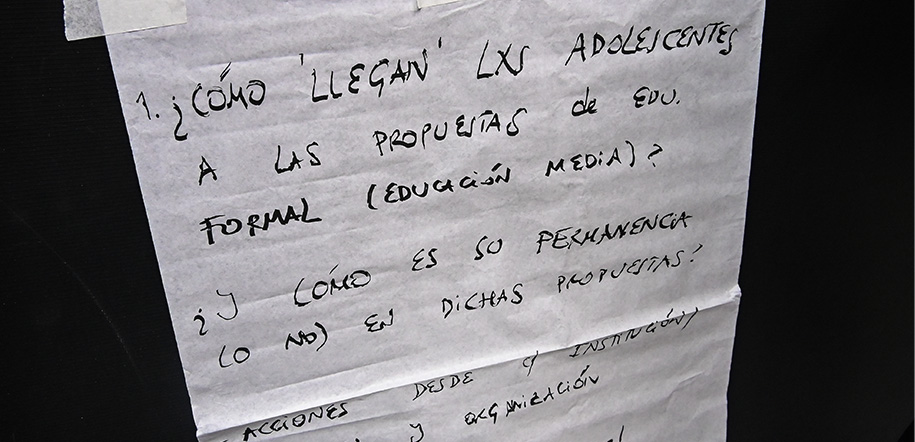 1. ¿CÓMO 'LLEGAN' LXS ADOLESCENTES
A LAS PROPUESTAS de EDU.
FORMAL (EDUCACIÓN MEDIA)?
¿Y CÓMO ES SU PERMANENCIA
(O NO) EN DICHAS PROPUESTAS?
ACCIONES DESDE INSTITUCIÓN/
y ORGANIZACIÓN